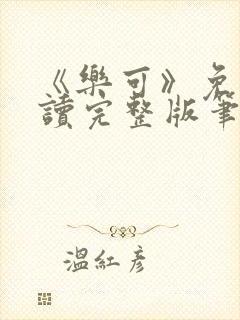 《樂可》免
讀完整版筆
溫紅彥